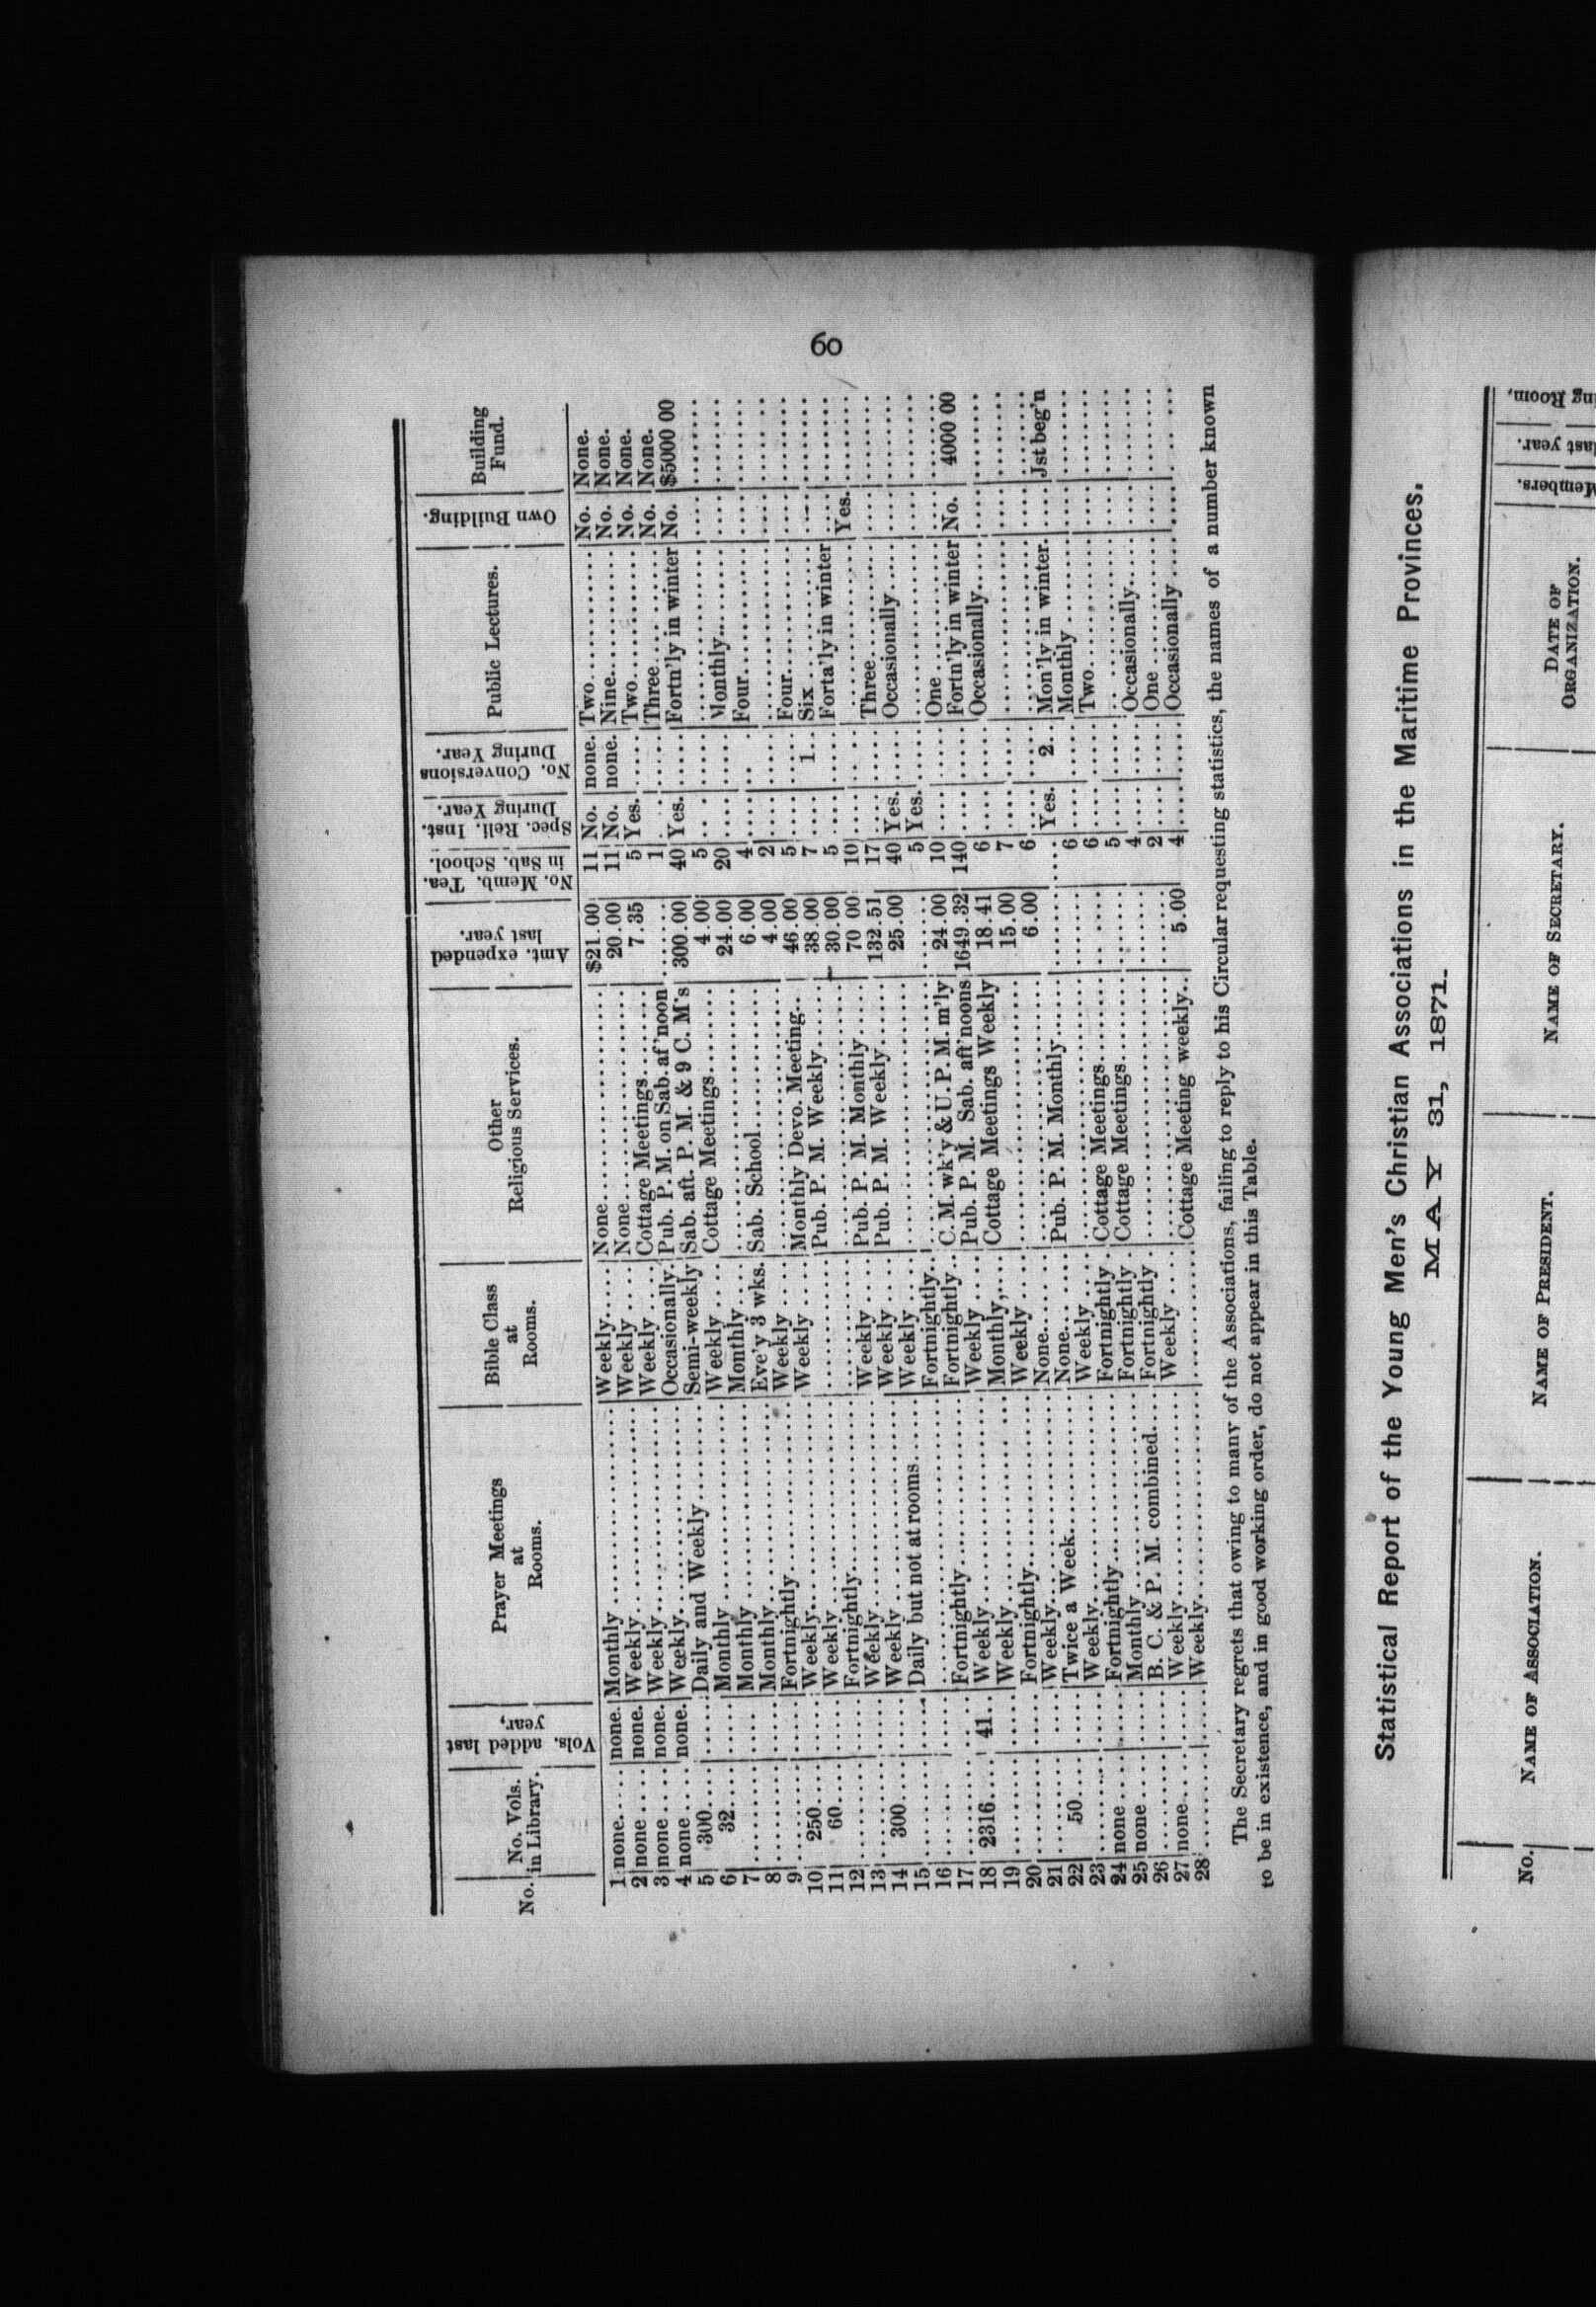 60
No. No. Vols. in Library. Vols. added last year, Prayer Meetings at Rooms. Bible Class at Rooms. Other Religious Services. Amt. expended last year. No. Memb. Tea. in Sab. School. Spec. Reli. Inst. During Year. No. Conversions During Year. Public Lectures. Own Building. Building Fund.
1 none..... none. Monthly ..... Weekly..... None..... $21.00 11 No. none. Two..... No. None.
2 none .... none. Weekly..... Weekly .... None..... 20.00 11 No. none. Nine..... No. None.
3 none .... none. Weekly..... Weekly .... Cottage Meetings..... 7.35 5 Yes. ..... Two..... No. None.
4 none .... none. Weekly..... Occasionally. Pub. P. M. on Sab. af'noon ..... 1 .... ..... Three..... No. None.
5 300.... ..... Daily and Weekly ..... Semi-weekly Sab. aft. P. M. & 9 C. M's 300.00 40 Yes. ..... Fortn'ly in winter No. $5000 00
6 32.... ..... Monthly ..... Weekly .... Cottage Meetings..... 4.00 5 .... ..... ..... .... .....
7 ..... ..... Monthly ..... Monthly.... ..... 24.00 20 .... ..... Monthly..... .... .....
8 ..... ..... Monthly..... Eve'y 3 wks. Sab. School..... 6.00 4 .... .... Four..... .... .....
9 ..... ..... Fortnightly..... Weekly .... ..... 4.00 2 .... ..... ..... .... .....
10 250.... ..... Weekly..... Weekly .... Monthly Devo. Meeting... 46.00 5 .... ..... Four..... .... .....
11 60.... ..... Weekly..... ..... Pub. P. M. Weekly..... 38.00 7 .... 1... Six..... .... .....
12 ..... ..... Fortnightly..... ..... ..... 30.00 5 .... ..... Forta'ly in winter .... .....
13 ..... ..... Weekly..... Weekly .... Pub. P. M. Monthly..... 70 00 10 .... ..... ..... Yes. .....
14 300.... ..... Weekly..... Weekly .... Pub. P. M. Weekly..... 132.51 17 .... ..... Three..... .... .....
15 ..... ..... Daily but not at rooms..... Weekly.... ..... 25.00 40 Yes. ..... Occasionally..... .... .....
16 ..... ..... ..... Fortnightly.. ..... ..... 5 Yes. ..... ..... .... .....
17 ..... ..... Fortnightly..... Fortnightly.. C. M. wk'y & U. P. M. m'ly 24.00 10 .... ..... One..... .... .....
18 2316.... 41.. Weekly..... Weekly .... Pub. P. M. Sab. aft'noons 1649.32 140 .... ..... Fortn'ly in winter No. 4000 00
19 ..... ..... Weekly..... Monthly,.... Cottage Meetings Weekly 18.41 6 .... ..... Occasionally..... .... .....
20 ..... ..... Fortnightly..... Weekly .... ..... 15.00 7 .... ..... ..... .... .....
21 ..... ..... Weekly..... None..... ..... 6.00 6 .... ..... ..... .... .....
22 50.... ..... Twice a Week..... None..... Pub. P. M. Monthly..... ..... .... Yes. 2.. Mon'ly in winter. .... Jst beg'n
23 ..... ..... Weekly..... Weekly .... ..... ..... 6 .... ..... Monthly ..... .... .....
24 none .... ..... Fortnightly..... Fortnightly . Cottage Meetings..... ..... 6 .... ..... Two..... .... .....
25 none..... ..... Monthly ..... Fortnightly . Cottage Meetings..... ..... 5 .... ..... ..... .... .....
26 ..... ..... B. C. & P. M. combined.... Fortnightly . ..... ..... 4 .... ..... Occasionally..... .... .....
27 none.... ..... Weekly..... Weekly .... ..... ..... 2 .... ..... One ..... .... .....
28 ..... ..... Weekly..... ..... Cottage Meeting weekly.. 5.00 4 .... ..... Occasionally ..... .... .....
The Secretary regrets that owing to many of the Associations, failing to reply to his Circular requesting statistics, the names of a number known
to be in existence, and in good working order, do not appear in this Table.
Statistical Report of the Young Men's Christian Associations in the Maritime Provinces.
MAY 31, 1871.
No. NAME OF ASSOCIATION. NAME OF PRESIDENT. NAME OF SECRETARY. DATE OF ORGANIZATION. Members. last year. Room,